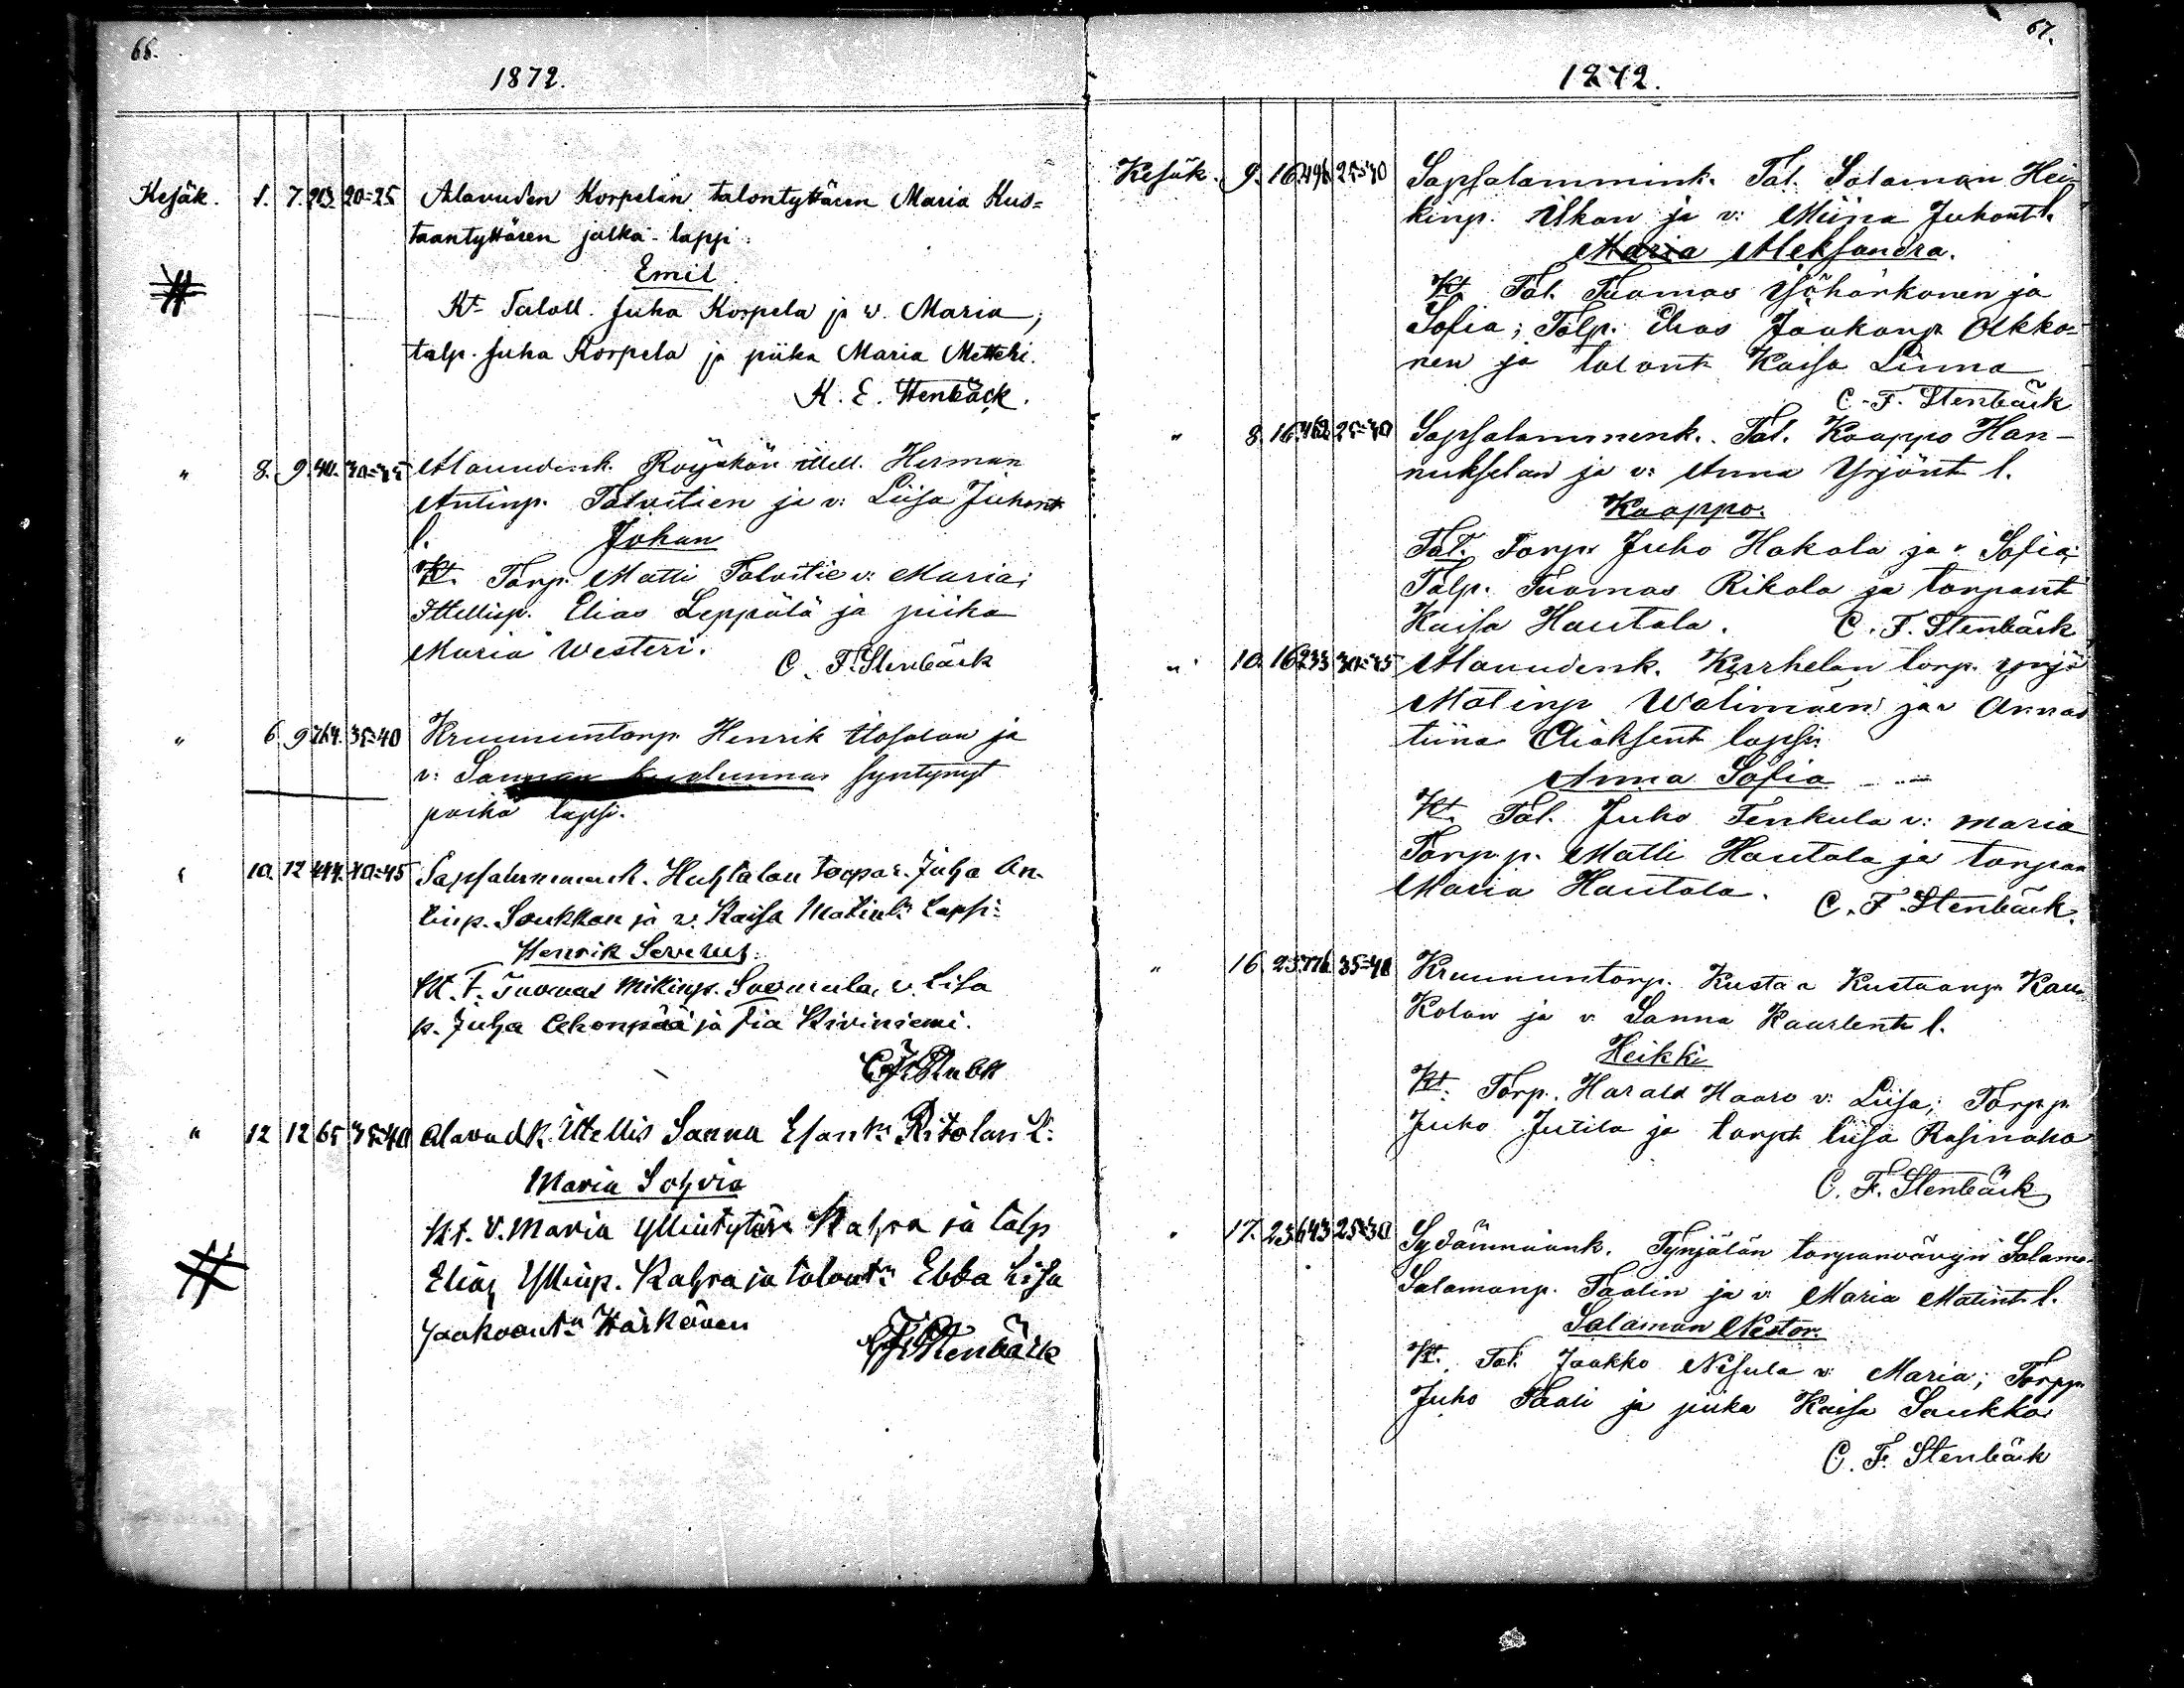 66.
1872.
Kesäk. 1. 7. 213. 20=25 Alavuden Korpelan talontyttären Maria Kus=
taantyttären jalka-lapsi:
Emil
Kt. Taloll. Juha Korpela ja v. Maria;
talp. Juha Korpela ja piika Maria Metteri.
K. E. Stenbäck.
" 8. 9. 40. 30=35 Alavudenk. Röyskön ittell. Herman
Antinp. Talvitien ja v: Liisa Juhont
l. Johan
Kt. Torp. Matti Talvitie v: Maria;
Ittellisp. Elias Leppälä ja piika
Maria Westeri.
C. F. Stenbäck
" 6. 9 764. 35=40 Kruununtorp. Henrik Uosolan ja
v: Sannan syntynyt
poika lapsi.
" 10. 12 444. 40=45 Sapsalammink. Huhtalan torpar. Juha An-
tinp. Soukkon ja v. Kaisa Matint: Lapsi:
Henrik Severus.
Kt. T. Tuomas Mikinp. Suomula, v. Lisa
p. Juha Ahonpää ja Fia Kiviniemi.
" 12 12 65 35=40 Alavudk. Ittellis Sanna Esant: Ritolan L:
Maria Sohvia
Kt. V. Maria Yllintytär Kahra ja talp
Elias Yllinp. Kahra ja talont: Ebba Lisa
Jaakoont: Härkönen
C. F. Stenbäck
67.
1872.
Kesäk. 9. 16. 496 25=30 Sapsalammink. Tal. Salaman Hei=
kinp. Ukan ja v: Miina Juhont l.
Maria Aleksandra.
Kt. Tal. Tuomas Ylihärkönen ja
Sofia; Talp. Elias Jaakonp. Akko=
nen ja talont Kaisa Linna
C. F. Stenbäck
" 8. 16. 462 25=30 Sapsalammenk. Tal. Kaappo Han-
nukselan ja v: Anna Yrjönt l.
Kaappo.
Tal. Torp. Juho Hakola ja v. Sofia;
Talp. Tuomas Rikala ja torpant
Kaisa Hautala. C. F. Stenbäck
" 10. 16 233 30=35 Alavudenk. Kerrhelan torp. Yrjö
Matinp Wälimäen ja v Anna
tiina lapsi.
Anna Sofia
Kt. Tal. Juho Tenkula v: Maria
Torp.p. Matti Hautala ja torpan
Maria Hautala. C. F. Stenbäck.
" 16 23 776 35=40 Kruununtorp. Kustaa Kustaanp. Kau
Kolan ja v. Sanna Kaarlent l.
Heikki
Kt. Torp. Harald Haaro v: Liisa; Torp.p.
Juho Jutila ja torpt liisa Rasinaho
C. F. Stenbäck
" 17. 23 643 25=30 Sydänmaank. Tynjälän torpanvävyn Salamo
Salamonp. Taalin ja v. Maria Matint l.
Salamon Nestor.
Kt. Tal. Jaakko Nisula v: Maria; Torpp.
Juho Taali ja piika Kaisa Saukko
C. F. Stenbäck